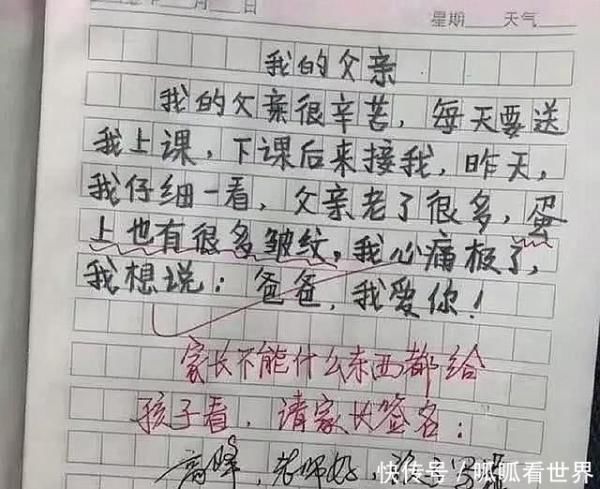 月 日 星期 天气
我的父亲
我的父亲很辛苦，每天要送
我上课，下课后来接我，昨天，
我仔细一看，父亲老了很多，蛋
上也有很多皱纹，我心痛极了，
我想说：爸爸，我爱你！
家长不能什么东西都给
孩子看，请家长签名：
高峰，老师好，
快传号／呱呱看世界